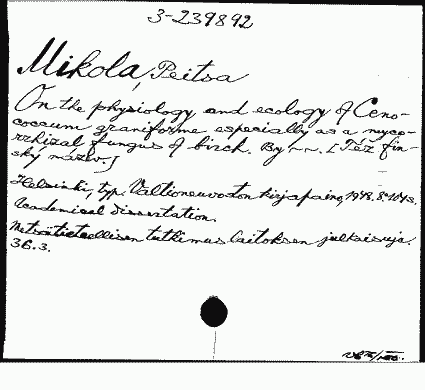 3-239892
Mikola, Peitsa
On the physiology and ecology of Ceno-
coccum graniforme especially as a myco-
rrhizal fungus of birch. By ~ ~. [Též fin-
ský název.]
Helsinki, typ. Valtioneuvoston kirjapaino, 1948. 8°. 104 s.
Academical dissertation.
Metsätieteellisen tutkimuslaitoksen julkaisuja.
36.3.